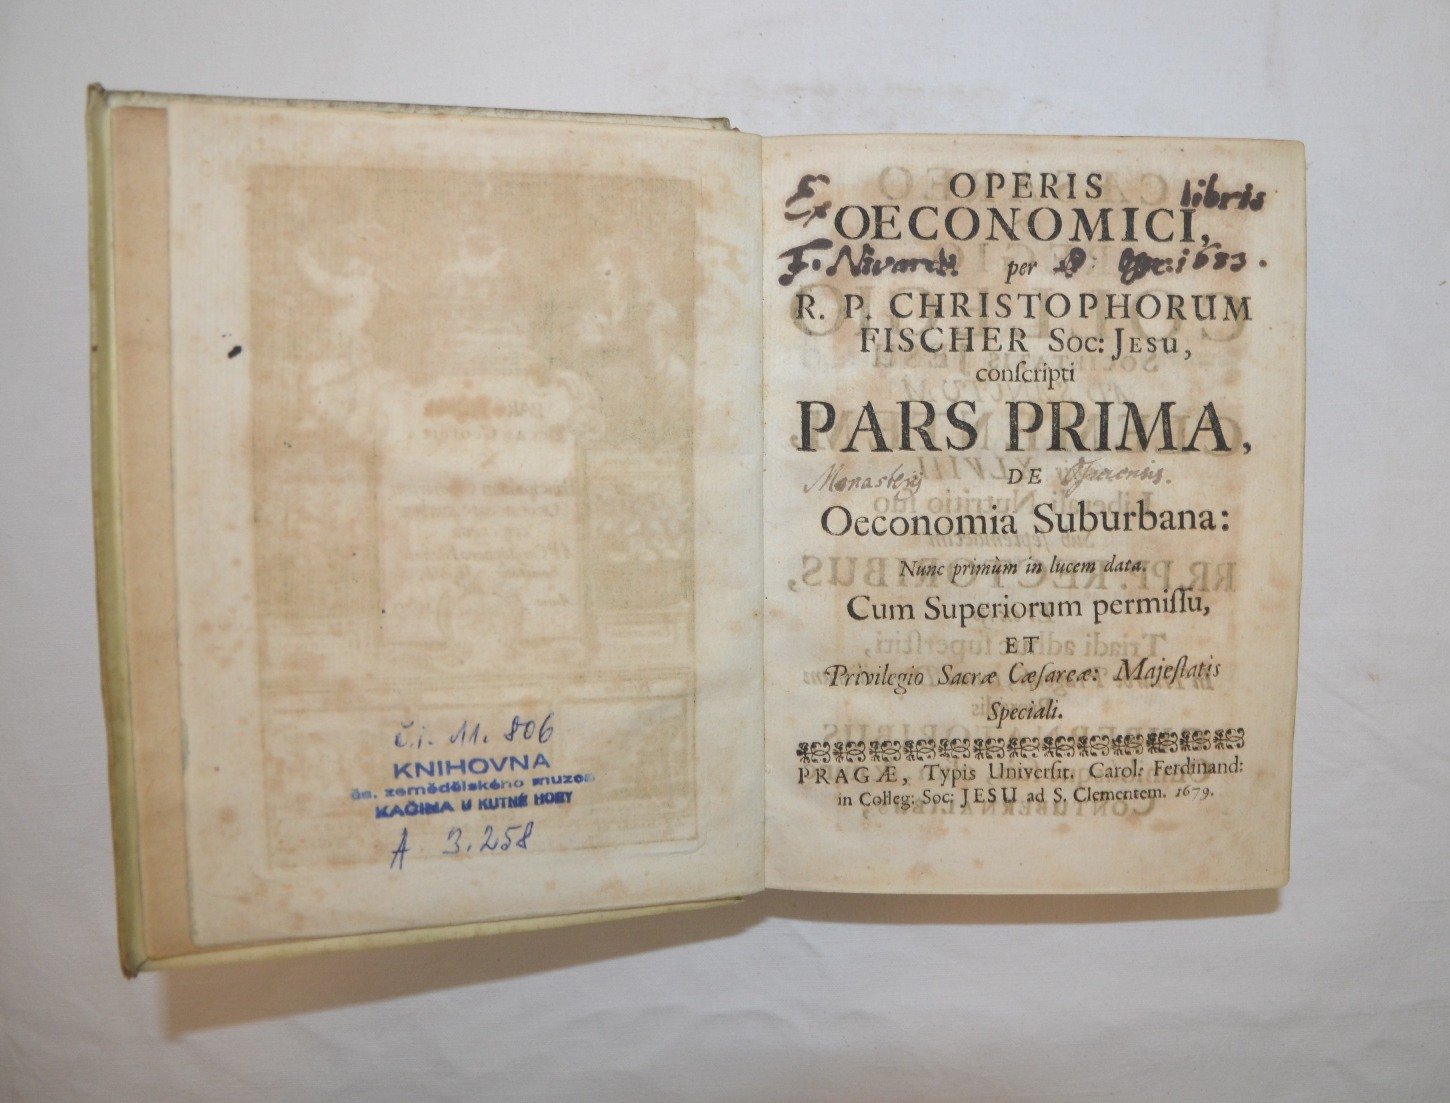 č.i. 11.806
KNIHOVNA
čs. zemědělského muzea
KAČINA U KUTNÉ HORY
A 3.258
OPERIS
Ex libris
OECONOMICI,
F. Nivardi per 1683.
R. P. CHRISTOPHORUM
FISCHER Soc: JESU,
conſcripti
PARS PRIMA,
Monasterij DE
Oeconomia Suburbana:
Nunc primùm in lucem data.
Cum Superiorum permiſſu,
ET
Privilegio Sacræ Cæſareæ: Majeſtatis
Speciali.
PRAGÆ, Typis Univerſit. Carol: Ferdinand:
in Colleg: Soc: JESU ad S. Clementem. 1679.